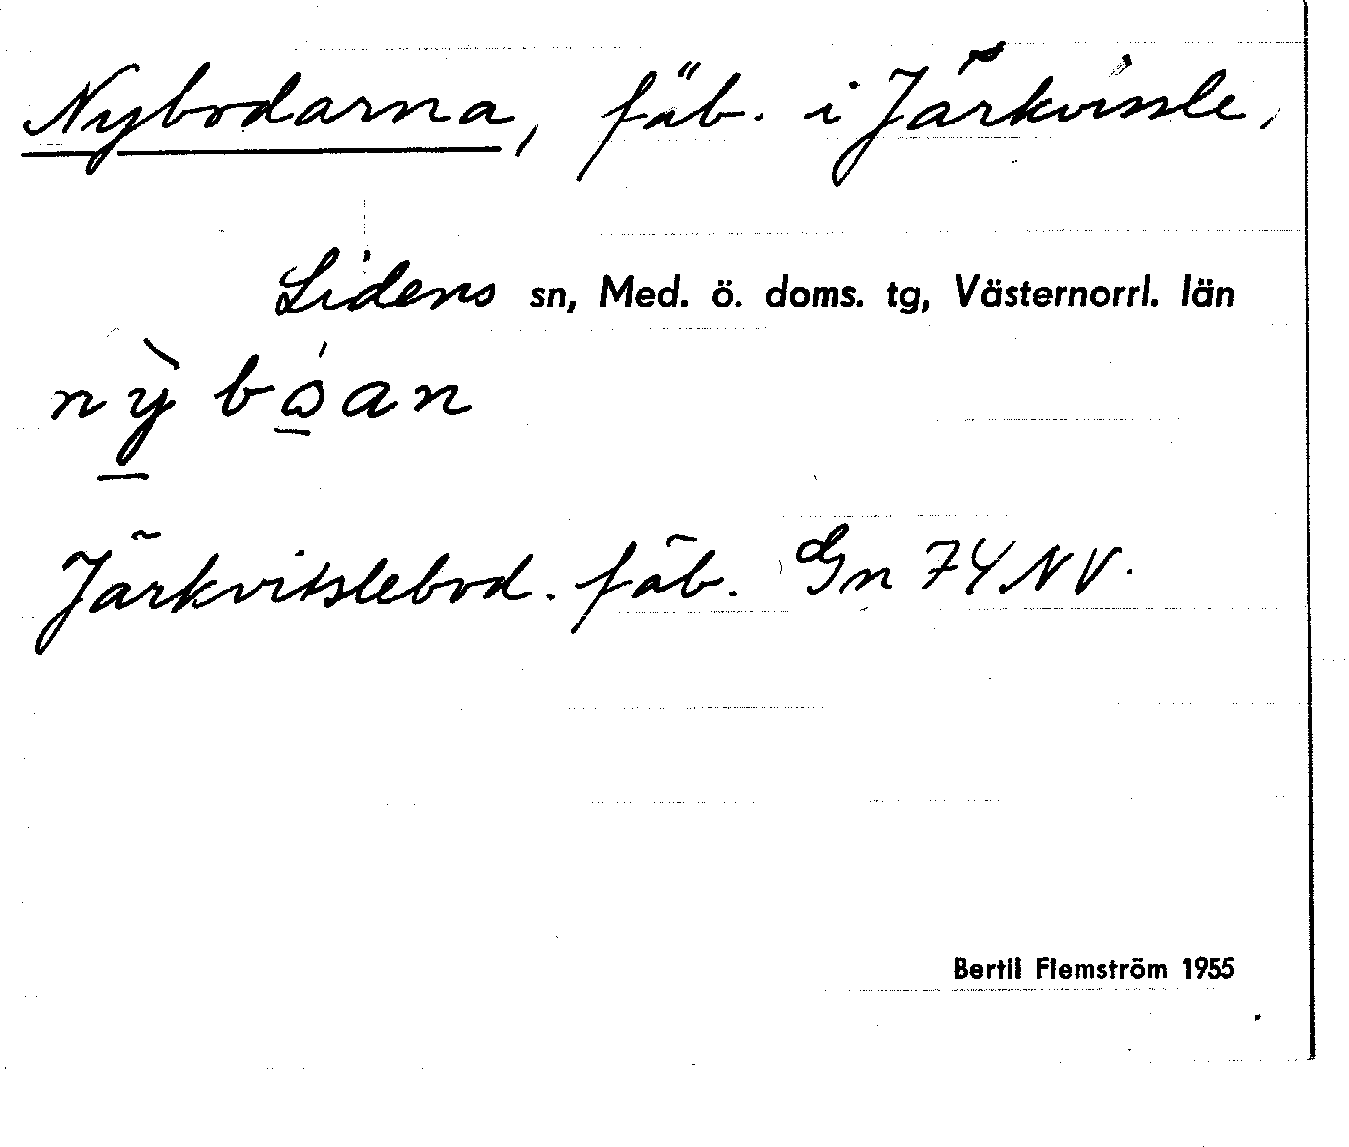 Nybodarna, fäb. i Järkvissle,
Lidens sn, Med. ö. doms. tg, Västernorrl. län
Järkvitslebod. fäb. Gn 74 NV.
Bertil Flemström 1955